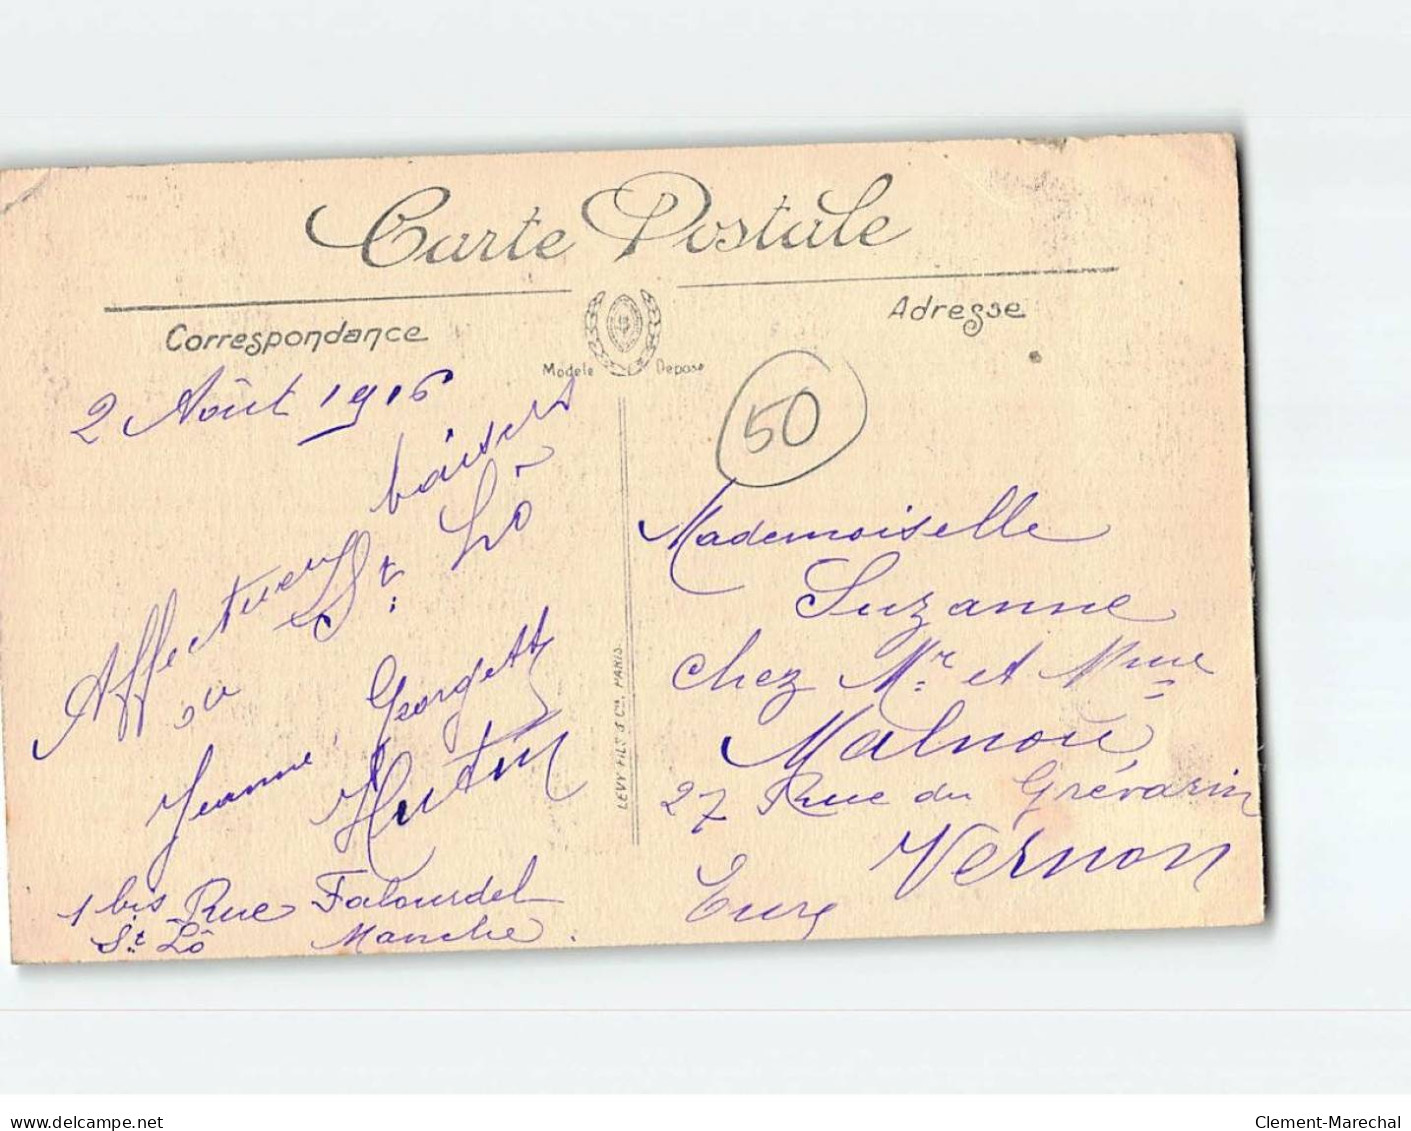 Carte Postale
Correspondance
Adresse
Modèle Déposé
2 Août 1916
Affectueux baisers
de St. Lô
Jeanne Georgette
Hutin
1 bis Rue Falourdel
St. Lô Manche.
LEVY FILS & Cie, PARIS.
50
Mademoiselle
Suzanne
chez Mr. et Mme
Malnou
27 Rue du Grévarin
Vernon
Eure
www.delcampe.net
Clement-Marechal